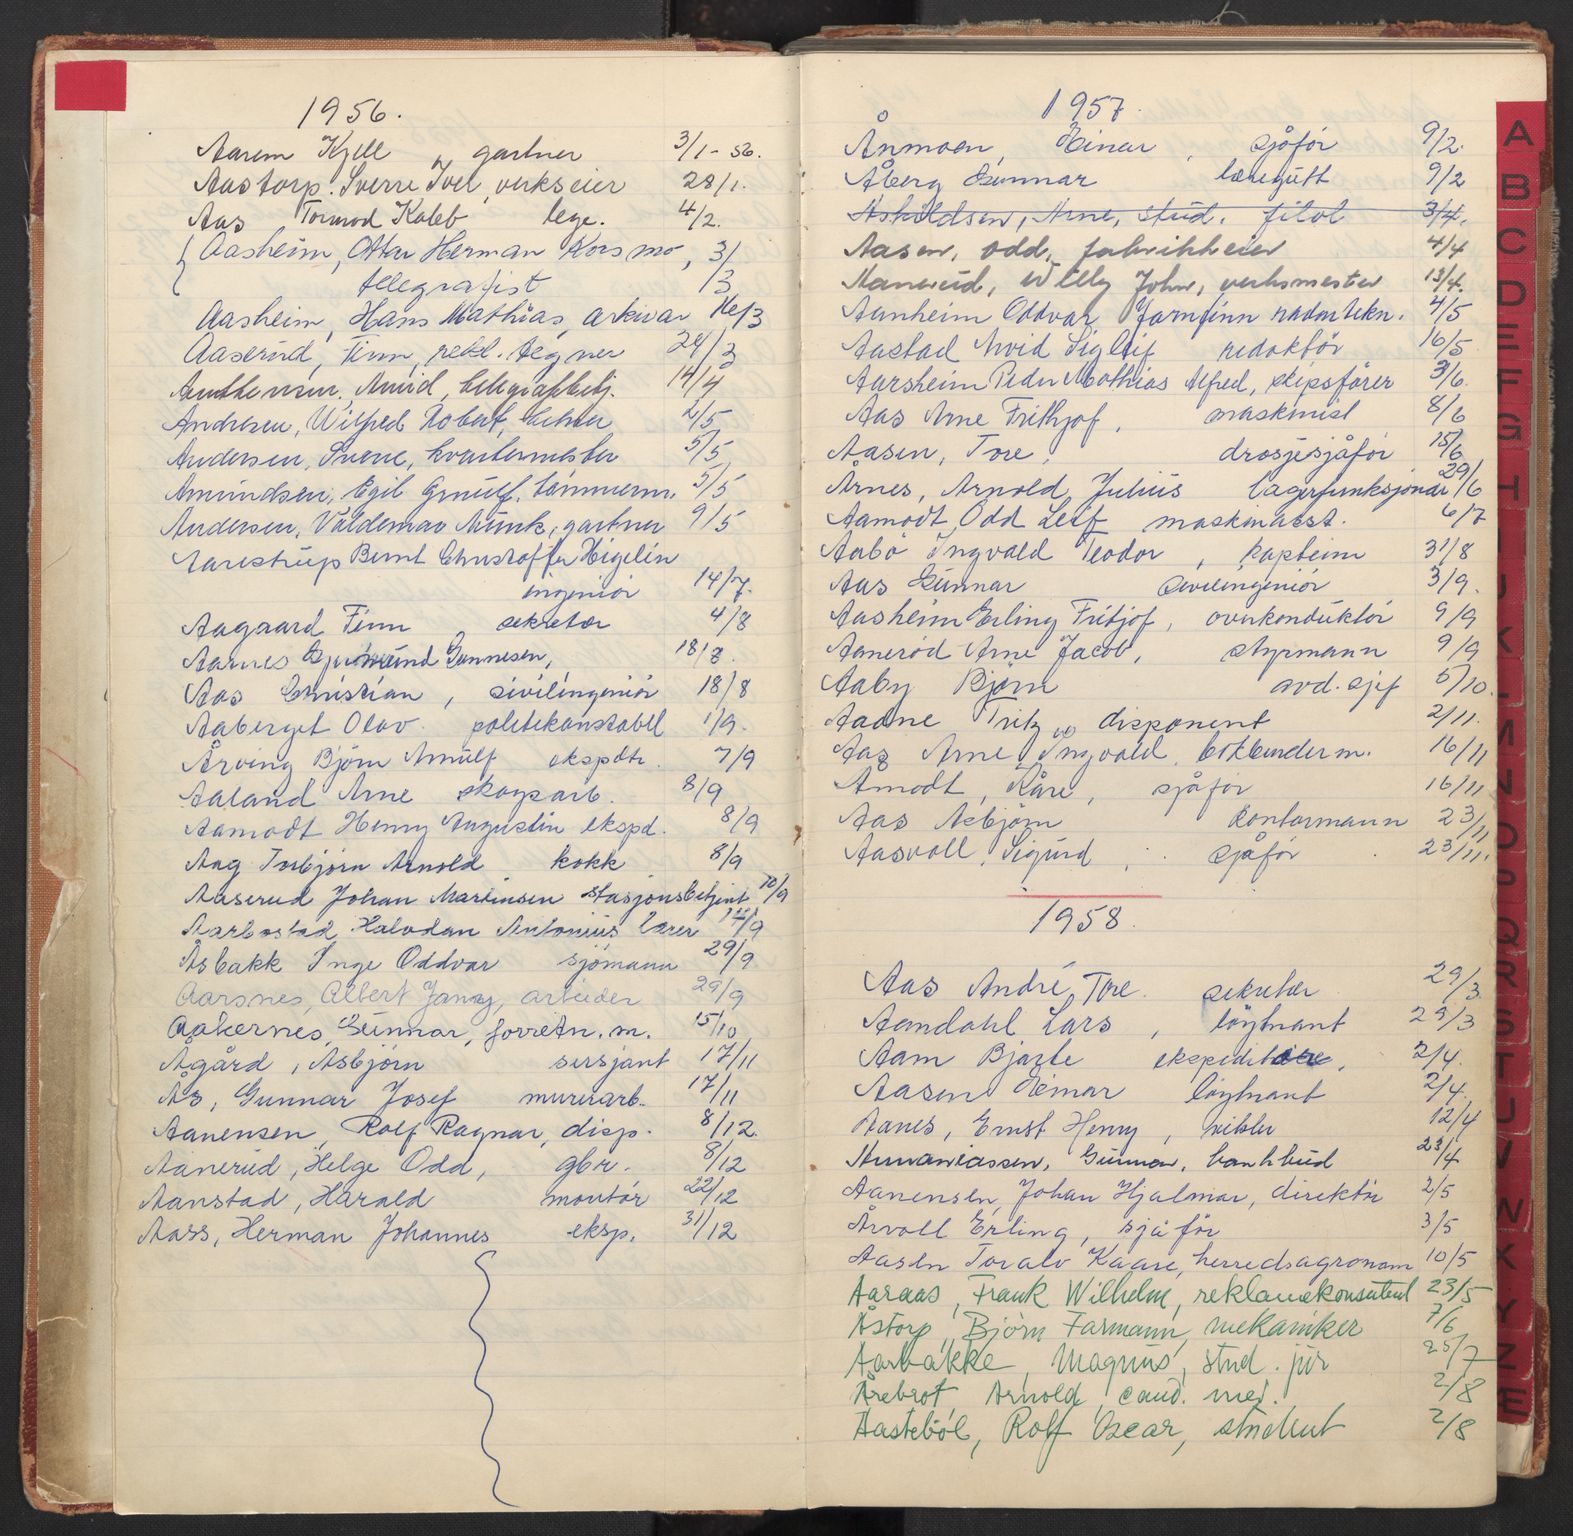 1956.
Aarem Kjell, gartner 3/1-56.
Aastorp. Sverre Iver, verkseier 28/1.
Aas Tormod Kaleb lege. 4/2.
Aasheim, Ottar Herman Korsmo, 3/
telegrafist /3
Aasheim, Hans Mathias, arkivar 16/3
Aaserud, Finn, rekl. tegner 24/3
Arvid, 14/4
Andresen, Wilfred Robert, 2/5
Andersen, Sverre, kvartermester 5/5
Amundsen, Egil Gunulf. tömmerm. 5/5
Andersen, Valdemar Munk, gartner 9/5
Aarestrup Bernt Christoffer Higelin
ingeniör 14/7.
Aagaard Finn sekretær 4/8
Aarnes Gunnesen, 18/8.
Aas Christian, sivilingeniör 18/8
Aaberget Olav. politikonstabel 1/9.
Årving Björn Arnulf ekspdtr. 7/9
Aaland Arne skogsarb. 8/9
Aamodt Henry Augustin ekspd. 8/9
Aag Torbjörn Arnold kokk 8/9
Aaserud Johan Martinsen stasjonsbetjent 10/9
Aarbostad Halvdan Antonius lærer 14/9
Åsbakk Inge Oddvar sjömann 29/9
Aarsnes, Albert Jansy, arbeider 29/9
Aakernes, Gunnar, forretn. m. 15/10
Ågård, Asbjörn sersjant 17/11
Ås, Gunnar Josef murerarb. 17/11
Aanensen, Rolf Ragnar, disp. 8/12.
Aanerud, Helge Odd, gbr. 8/12
Aanstad, Harald montör 22/12
Aass, Herman Johannes eksp. 31/12
1957.
Ånmoen, Einar, sjåför 9/2.
Åberg Gunnar læregutt 9/2
Askildsen, Arne, stud. filol 3/4.
Aasen, Odd, fabrikkeier 4/4
Aanerud, Willy John, verksmester 13/4.
Aanheim Oddvar Jarnfinn radiotekn. 4/5
Aastad Arvid Sigleif redaktör 16/5
Aarsheim Peder Mathias Alfred, skipsförer 3/6.
Aas Arne Frithjof, maskinist 8/6
Aasen, Tore, drosjesjåför 15/6
Årnes, Arnold Julius lagerfunksjonær 29/6
Aamodt, Odd Leif maskinasst. 6/7
Aabö Ingvald Teodor, kaptein 31/8
Aas Gunnar sivilingeniör 3/9.
Aasheim Erling Fritjof, overkonduktör 9/9
Aaneröd Arne Jacob, styrmann 9/9
Aaby Bjørn avd. sjef 5/10.
Aadne Fritz, disponent 2/11.
Aas Arne Ingvald, bokbinderm. 16/11
Åmodt, Kåre, sjåför 16/11
Aas Asbjörn kontormann 23/11
Aasvoll, Sigurd, sjåför 23/11.
1958.
Aas André, Tore. sekretær 29/3.
Aandahl Lars, löytnant 29/3
Aam Bjarte ekspeditör, 2/4.
Aasen Einar löytnant 2/4.
Aanes, Ernst Henry, 12/4
Gunnar, bankbud 23/4
Aanensen, Johan Hjalmar, direktör 2/5
Årvoll Erling, sjåför 3/5
Aasen Toralv Kaare, herredsagronom 10/5
Aaraas, Frank Wilhelm, reklamekonsulent 23/5
Åstorp, Björn Farmann, mekaniker 7/6
Aarbakke, Magnus, stud. jur 25/7
Årebrot, Arnold, cand. med. 2/8
Aasteböl, Rolf Oscar, student 2/8
A
B
C
D
E
F
G
H
I
J
K
L
M
N
O
P
Q
R
S
T
U
V
W
X
Y
Z
Æ